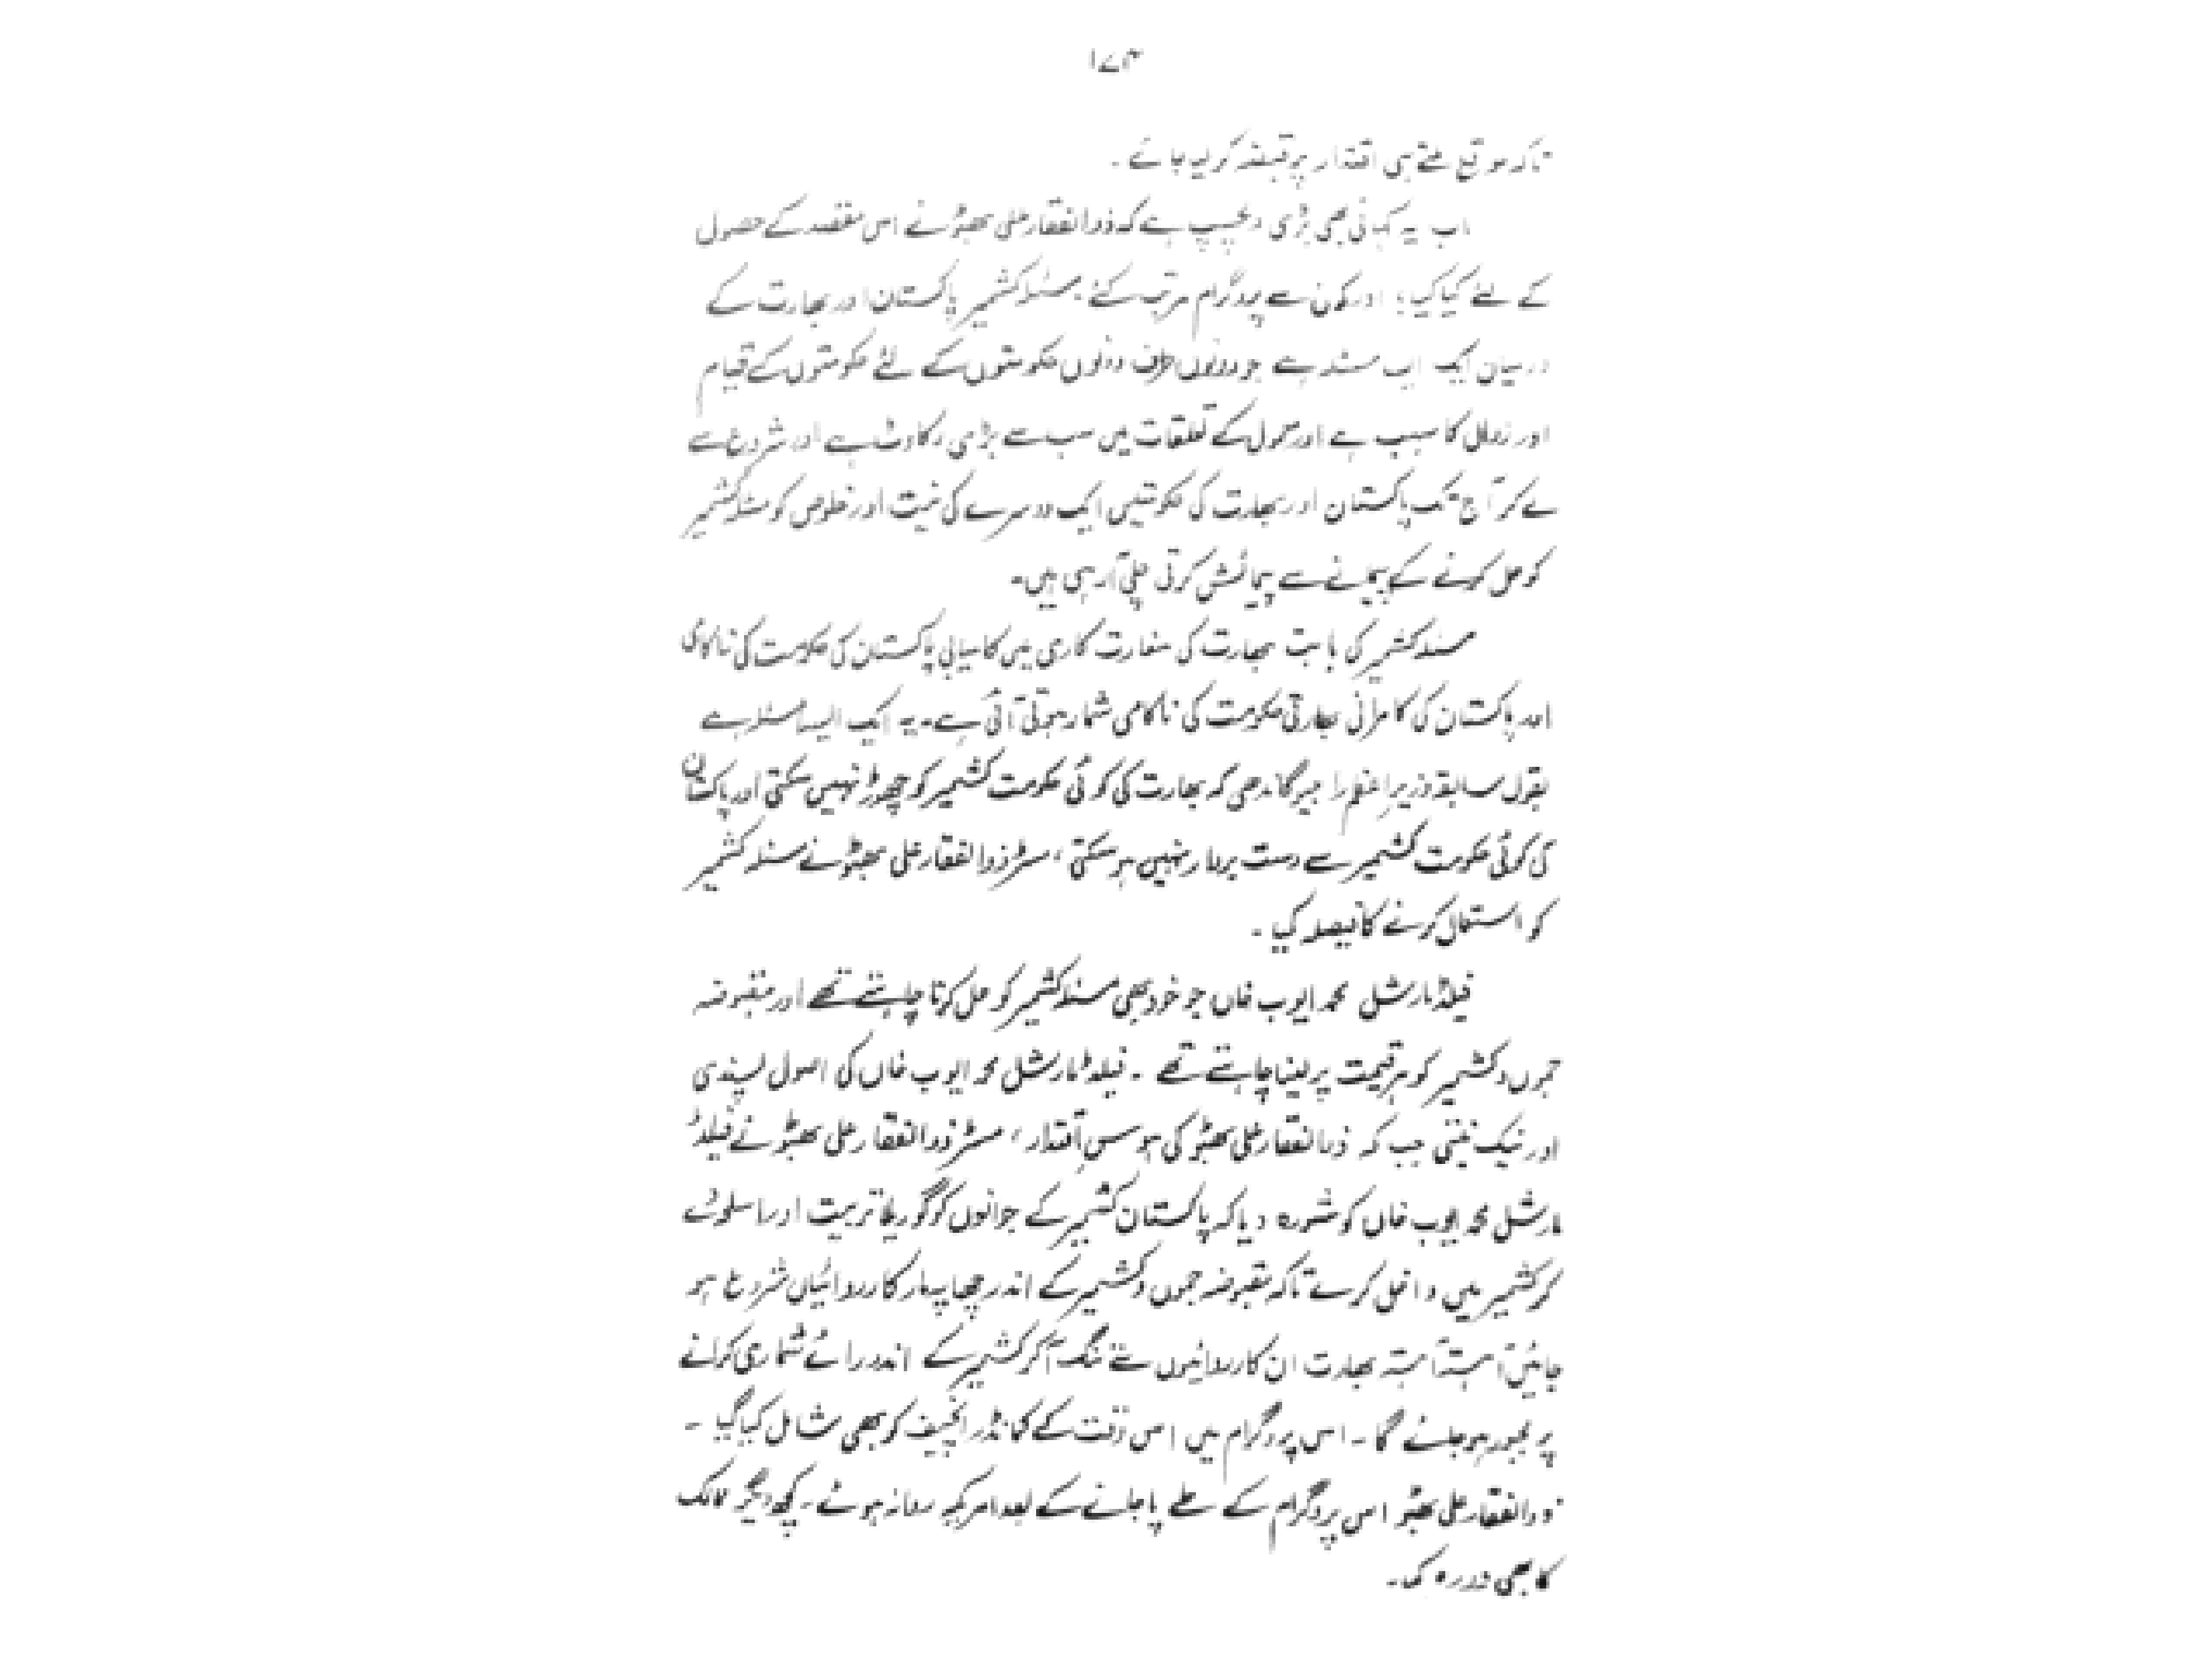 ۱۷۳
تاکہ موقع ملتے ہی اقتدار پر قبضہ کر لیا جائے ۔
اب یہ کہانی بھی بڑی دلچسپ ہے کہ ذوالفقار علی بھٹو نے اس مقصد کے حصول
کے لئے کیا کیا ؟ اور کون سے پروگرام مرتب کئے ۔ مسئلہ کشمیر پاکستان اور بھارت کے
درمیان ایک ایسا مسئلہ ہے جو دونوں طرف دونوں حکومتوں کے لئے حکومتوں کے قیام
اور زوال کا سبب ہے اور معمول کے تعلقات میں سب سے بڑی رکاوٹ ہے اور شروع سے
لے کر آج تک پاکستان اور بھارت کی حکومتیں ایک دوسرے کی نیت اور خلوص کو مسئلہ کشمیر
کو حل کرنے کے پیمانے سے پیمائش کرتی چلی آ رہی ہیں ۔
مسئلہ کشمیر کی بابت بھارت کی سفارت کاری میں کامیابی پاکستان کی حکومت کی ناکامی
اور پاکستان کی کامرانی بھارتی حکومت کی ناکامی شمار ہوتی آئی ہے ۔ یہ ایک ایسا مسئلہ ہے
بقول سابقہ وزیر اعظم را جیو گاندھی کہ بھارت کی کوئی حکومت کشمیر کو چھوڑ نہیں سکتی اور پاکستان
کی کوئی حکومت کشمیر سے دست بردار نہیں ہو سکتی ، مسٹر ذوالفقار علی بھٹو نے مسئلہ کشمیر
کو استعمال کرنے کا فیصلہ کیا ۔
فیلڈ مارشل محمد ایوب خاں جو خود بھی مسئلہ کشمیر کو حل کرنا چاہتے تھے اور مقبوضہ
جموں و کشمیر کو ہر قیمت پر لینا چاہتے تھے ۔ فیلڈ مارشل محمد ایوب خاں کی اصول پسندی
اور نیک نیتی جب کہ ذوالفقار علی بھٹو کی ہوس اقتدار ، مسٹر ذوالفقار علی بھٹو نے فیلڈ
مارشل محمد ایوب خاں کو مشورہ دیا کہ پاکستان کشمیر کے جوانوں کو گوریلا تربیت اور اسلحہ دے
کر کشمیر میں داخل کرے تاکہ مقبوضہ جموں و کشمیر کے اندر چھاپہ مار کارروائیاں شروع ہو
جائیں آہستہ آہستہ بھارت ان کارروائیوں سے تنگ آ کر کشمیر کے اندر رائے شماری کرانے
پر مجبور ہو جائے گا ۔ اس پروگرام میں اس وقت کے کمانڈر انچیف کو بھی شامل کیا گیا ۔
ذوالفقار علی بھٹو اس پروگرام کے طے پا جانے کے بعد امریکہ روانہ ہوئے ۔ کچھ دیگر ممالک
کا بھی دورہ کیا ۔